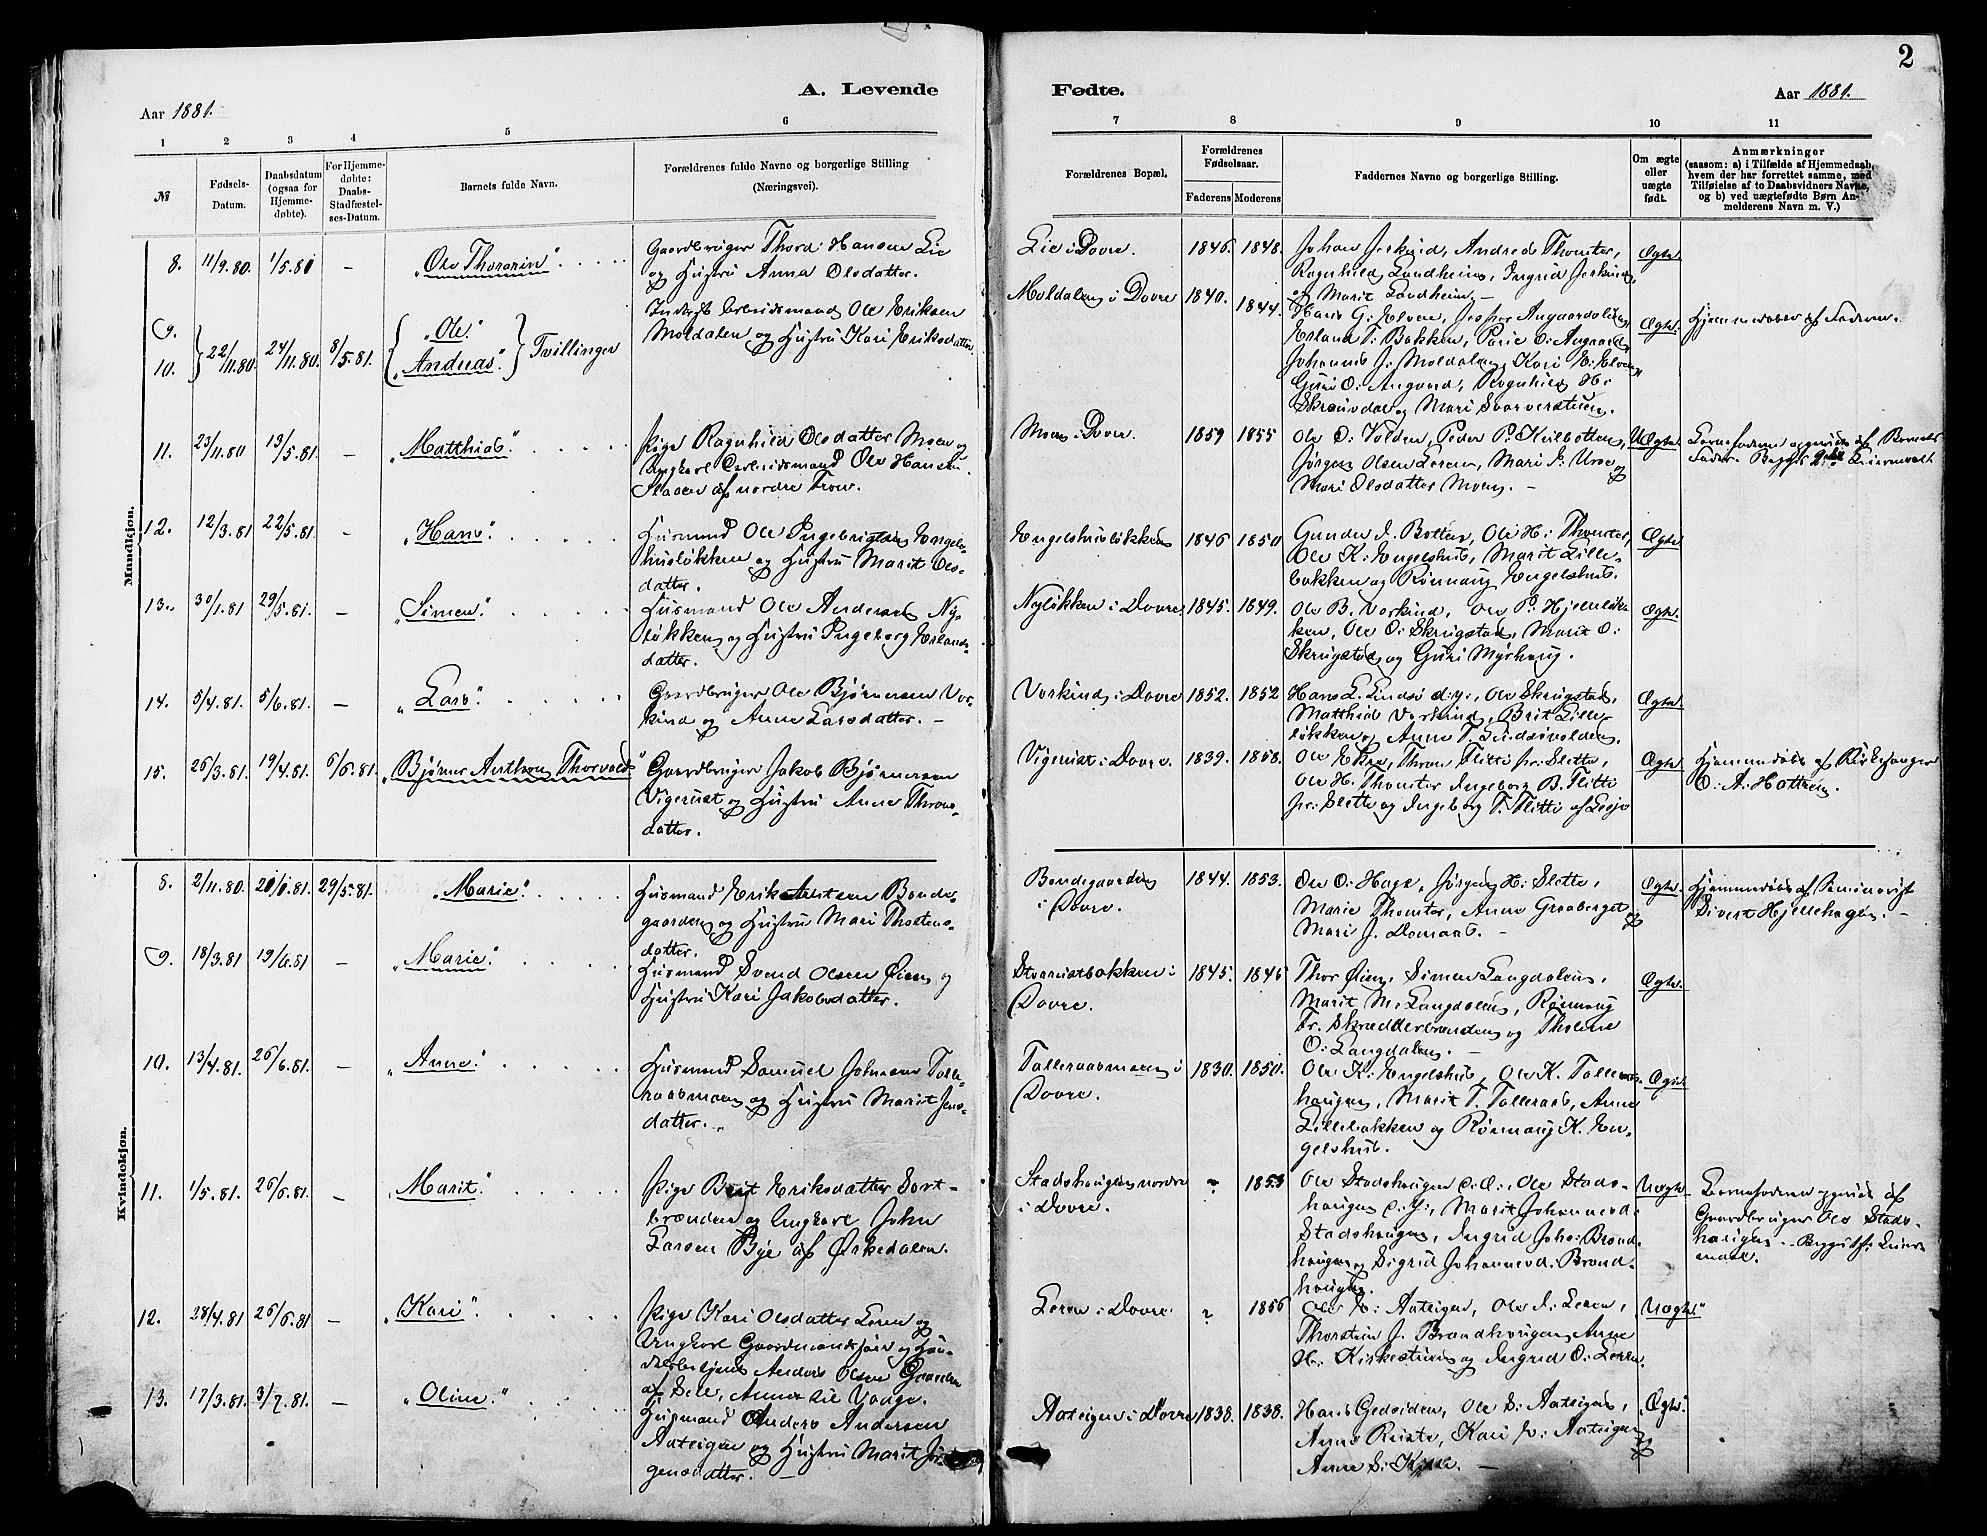 2
A. Levende
Fødte.
Aar 1881.
Aar 1881.
1 2 3 4 5 6
7 8 9 10 11
№
Fødsels-
Datum.
Daabsdatum
(ogsaa for
Hjemme-
døbte).
For Hjemme-
døbte:
Daabs-
Stadfæstel-
ses-Datum.
Barnets fulde Navn.
Forældrenes fulde Navne og borgerlige Stilling
(Næringsvei).
Forældrenes Bopæl.
Forældrenes
Fødselsaar.
Faderens Moderens
Faddernes Navne og borgerlige Stilling.
Om ægte
eller
uægte
født.
Anmærkninger
(saasom: a) i Tilfælde af Hjemmedaab,
hvem der har forrettet samme, med
Tilføielse af to Daabsvidners Navne,
og b) ved uægtefødte Børn An-
melderens Navn m. V.)
Mandkjøn.
8. 11/9.80. 1/5.81 – "Ole Thorarin"
Gaardbruger Thord Hansen Lie
og Hustru Anna Olsdatter.
Lie i Dovre. 1846. 1848.
Johan Jerkind, Andreas Thomter,
Ragnhild Landheim, Ingrid Jerkind
og Marit Landheim. –
Ægte
9.
10. 22/11.80. 24/11.80. 8/5.81. "Ole"
"Andreas" Tvillinger
Inderst Arbeidsmand Ole Eriksen
Moldalen og Hustru Kari Eriksdatter.
Moldalen i Dovre 1840. 1844.
Hans G. Elven, Jesper Angaardslien,
Erland T. Bakken, O: Angaard,
Johannes J. Moldalen, Kari E: Elven,
Guri O: Angaard, Ragnhild H:
og Mari
Ægte
Hjemmedøbt af Faderen.
11. 23/11.80 13/5.81. – "Matthias"
Pige Ragnhild Olsdatter Moen og
Ungkarl Arbeidsmand Ole Hansen
af nordre Fron.
Moen i Dovre. 1859 1855
Ole O: Volden, Peder P. Kielbotten,
Jørgen Olsen Leren, Mari J: og
Mari Olsdatter Moen. –
Uægte
af Barnets
Fader. Begges Leiermaal
12. 12/3.81 22/5.81. – "Hans"
Husmand Ole Ingebrigtsen Engels-
husløkken og Hustru Marit Ols-
datter.
Engelshusløkken 1846 1850
Gunder J. Botten, Ole H: Thomter,
Ole K: Engelshus, Marit Lille-
bakken og Rønnaug Engelshus.
Ægte
13. 30/1.81 29/5.81. – "Simen"
Husmand Ole Andersen Ny-
løkken og Hustru Ingeborg Erlands-
datter.
Nyløkken i Dovre. 1845. 1849.
Ole B. Vorkind, Ole P: Hjelleløk-
ken, Ole O: Skrugstad, Marit O:
Skrugstad og Guri Myrhaug.
Ægte
14. 5/4.81. 5/6.81. – "Lars"
Gaardbruger Ole Bjørnersen Vor-
kind og Anne Larsdatter. –
Vorkind i Dovre 1852. 1852
Hans L. Lindsø d.y., Ole Skrugstad,
Matthias Vorkind, Brit Lille-
løkken og Anne T. Lindsøvolden.
Ægte.
15. 26/3.81. 19/4.81. 6/6.81. "Bjørner Anthon Thorvald"
Gaardbruger Jakob Bjørnersen
Vigerust og Hustru Anne Throns-
datter.
Vigerust i Dovre. 1839. 1858.
Ole Ekre, Thron Flitti fr. Slette,
Ole H. Thomter, Ingeborg B. Flitti
fr: Slette og Ingeborg T. Flitti af Lesje
Ægte
Hjemmedøbt af Kirkesanger
O: A: Hattrem.
Kvindekjøn.
8. 2/11.80. 20/1.81. 29/5.81. "Marie"
Husmand Erik Bonde-
gaarden og Hustru Mari Thostens-
datter.
Bondegaarden
i Dovre. 1844. 1853.
Ole O: Hage, Jørgen H: Slette,
Marie Thomter, Anne Graaberget og
Mari J. Domaas. –
Ægte.
Hjemmedøbt af Seminarist
Sivert Hjellehagen. –
9. 18/3.81. 19/6.81 – "Marie"
Husmand Svend Olsen Øien og
Hustru Kari Jakobsdatter.
bakken i
Dovre. 1845. 1846
Thor Øien, Simen Langdalen,
Marit M. Langdalen, Rønnaug
Tr. Skrædderbrænden og Tholine
O: Langdalen. –
Ægte.
10. 13/4.81. 26/6.81. – "Anne"
Husmand Samuel Johnsen Tolle-
raasmoen og Hustru Marit Jens-
datter.
Tolleraasmoen i
Dovre. 1830. 1850.
Ole K: Engelshus, Ole K. Tolleraas-
haugen, Marit T. Tolleraas, Anne
Lillebakken og Rønnaug K. En-
gelshus.
Ægte.
11. 1/5.81. 26/6.81. – "Marit"
Pige Brit Eriksdatter Sort-
brænden og Ungkarl John
Larsen Bye af Ørkedalen.
Stadshaugen nordre
i Dovre. ? 1853
Ole Stadshaugen d.æ., Ole Stads-
haugen d.y., Marit Johannesd:
Stadshaugen, Ingrid Johs: Brænd-
haugen og Sigrid Johannesd: Brænd-
haugen.
Uægte
af
Gaardbruger Ole Stads-
haugen. Begges 1ste Leier-
maal.
12. 28/4.81. 26/6.81 – "Kari"
Pige Kari Olsdatter Leren og
Ungkarl Gaardmandssøn og
Anders Olsen
af Sell,
Leren i Dovre. ? 1856
Ole E: Aateigen, Ole J: Leren,
Thorstein J. Brændhaugen, Anne
H. Kirkestuen og Ingrid O: Leren.
Uægte
13. 17/3.81. 3/7.81. – "Oline"
Husmand Anders Andersen
Aateigen og Hustru Marit Jør-
gensdatter. –
Aateigen i Dovre 1838. 1838.
Hans Gedsiden, Ole S: Aateigen,
Anne Ruste, Kari E: Aateigen og
Anne S:
Ægte